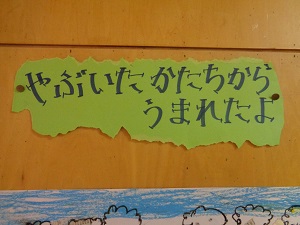 やぶいたかたちから
うまれたよ